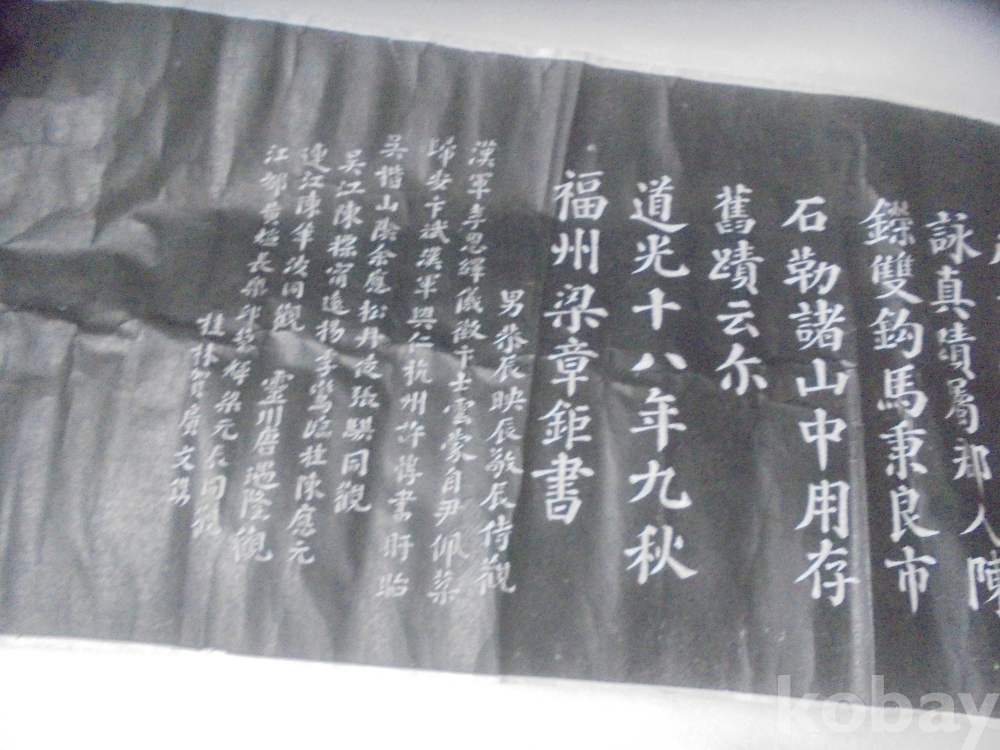 詠真蹟屬郡人陳
鑠雙鈎馬秉良市
石勒諸山中用存
舊蹟云尔
道光十八年九秋
福州梁章鉅書
男恭辰映辰敬辰侍觀
漢軍李恩繹儀徵 士雲蒙自尹佩棻
歸安卞斌漢軍興仁杭州許 書盱眙
吳 山陰余應松丹徒張騏同觀
吳江陳 甯遠楊季鸞臨桂陳應元
連江陳 同觀 靈川唐遇隆觀
江都黃 長樂 梁元辰同觀
桂林 文
kobay